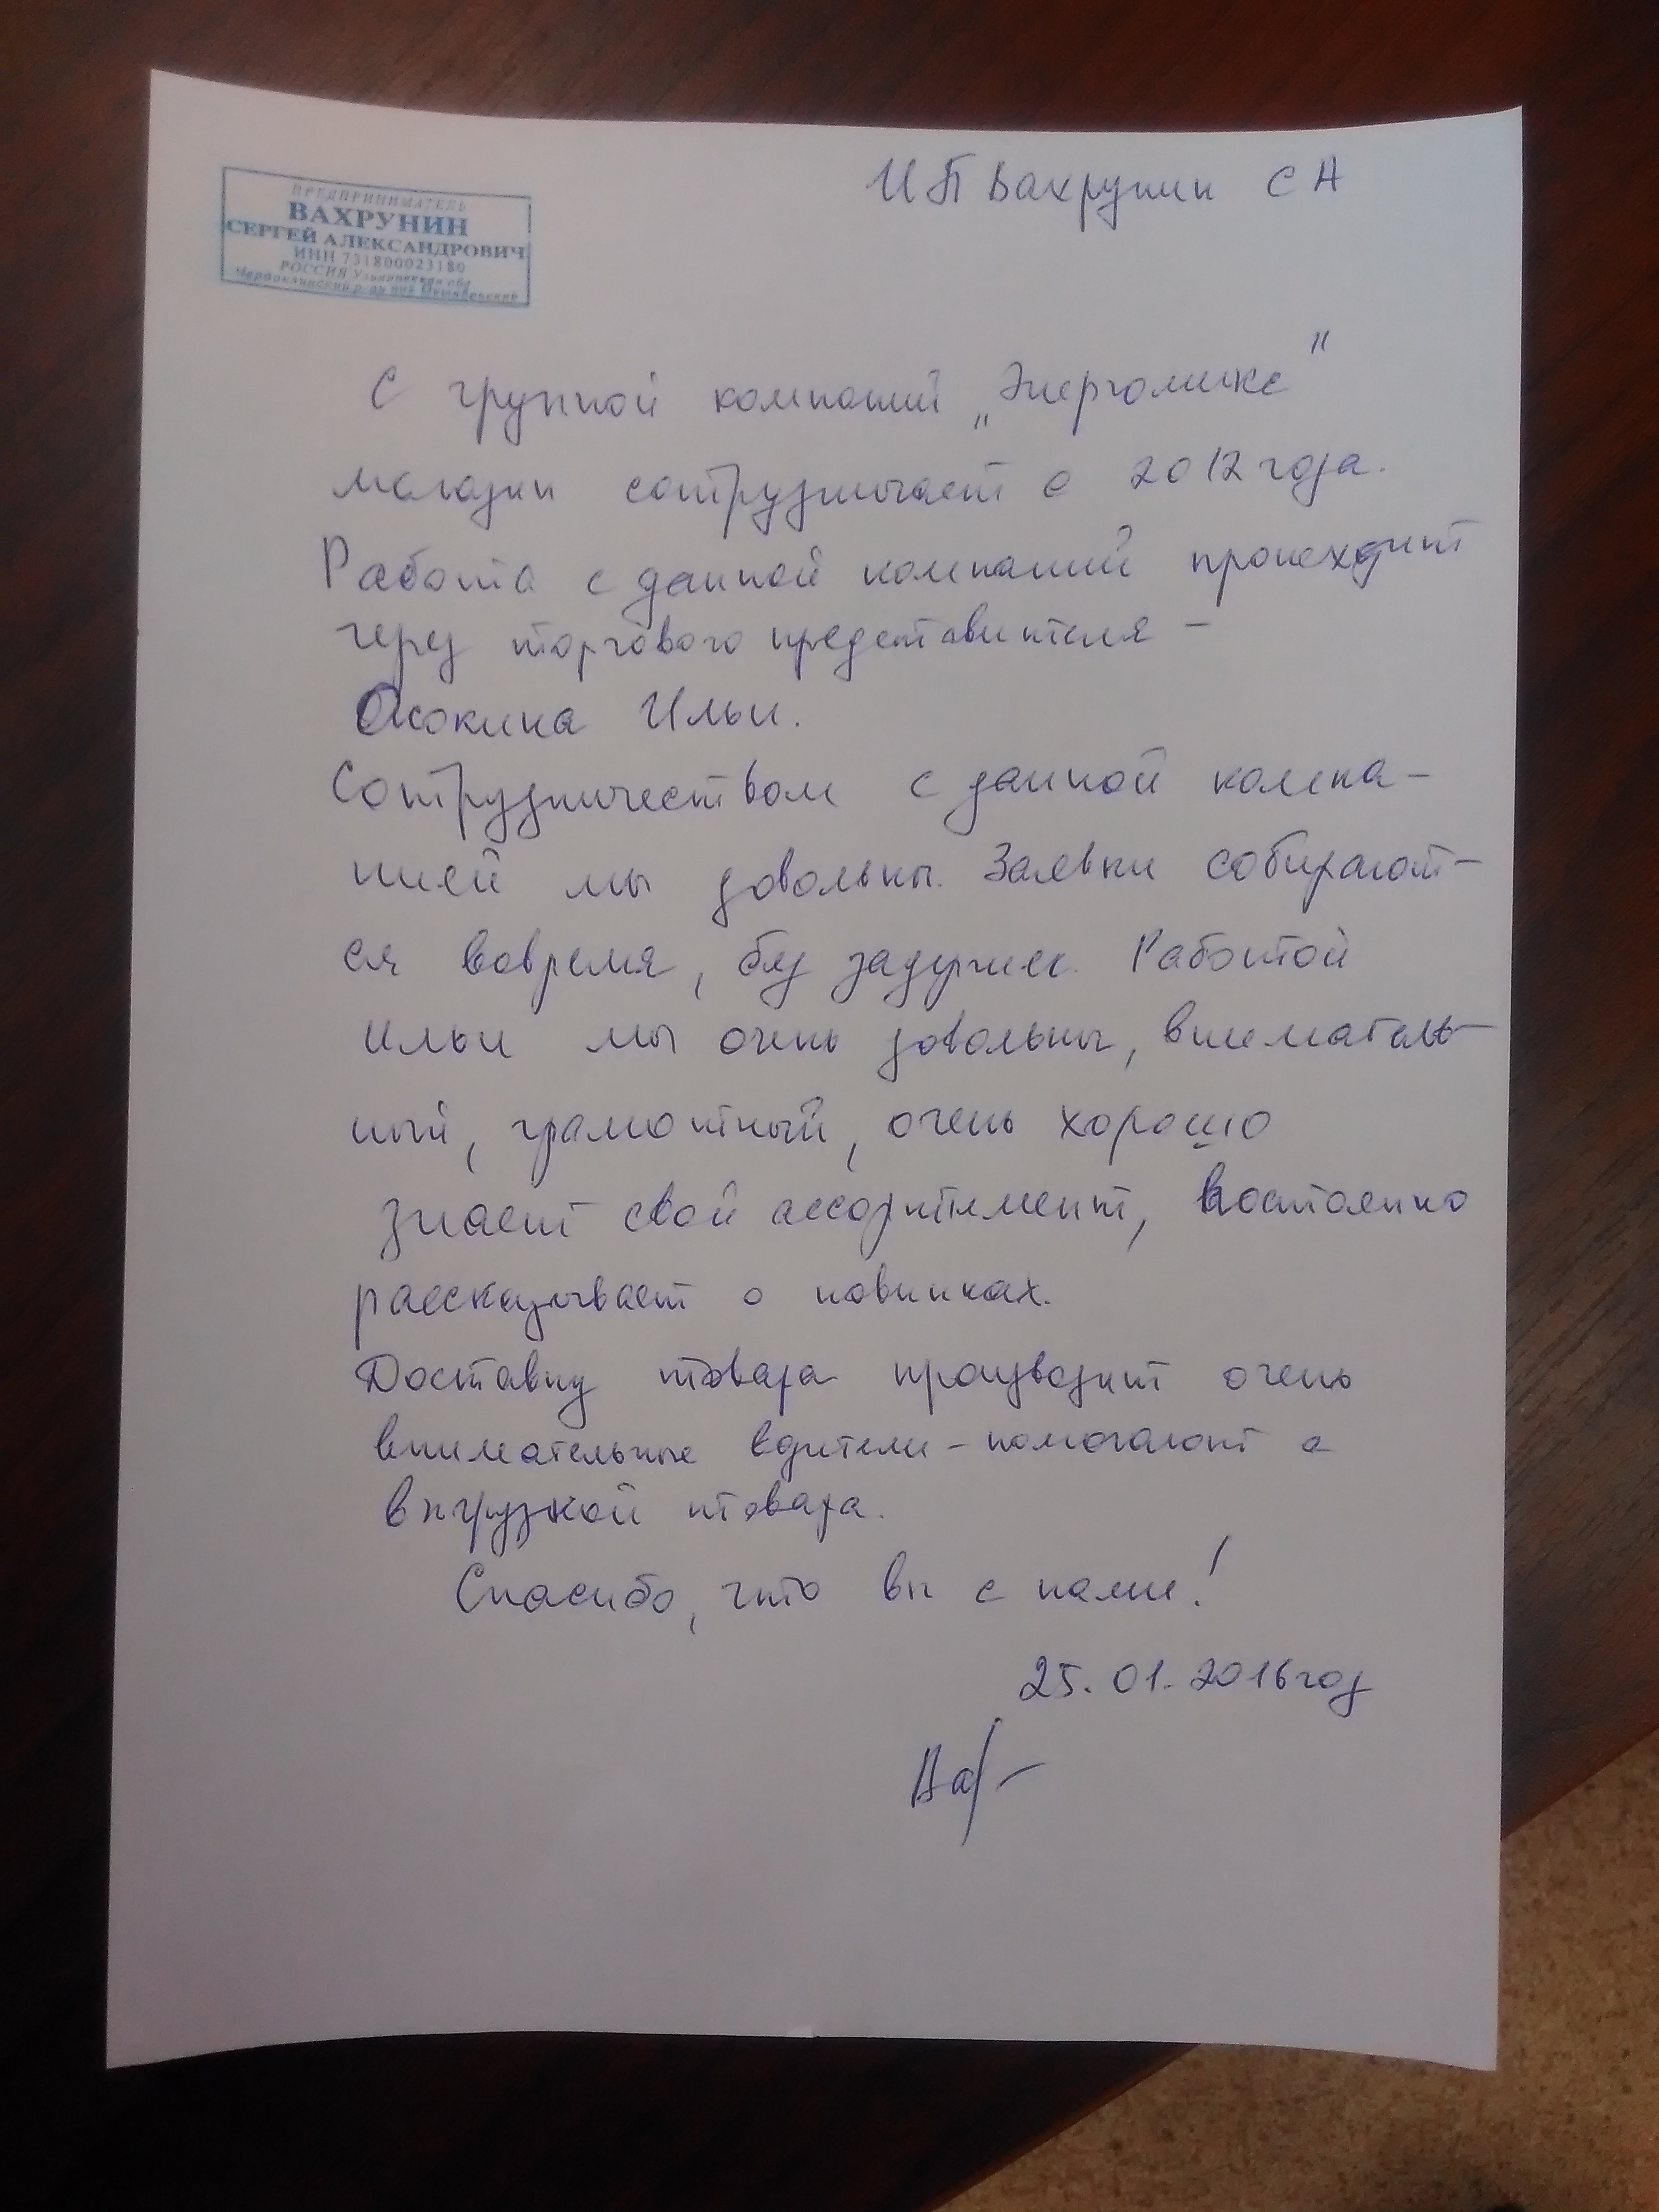 ПРЕДПРИНИМАТЕЛЬ
ВАХРУНИН
СЕРГЕЙ АЛЕКСАНДРОВИЧ
ИНН 731800023180
РОССИЯ Ульяновская обл
Чердаклинский р-он
ИП Вахрунин С А
С группой компаний „Энергомикс"
магазин сотрудничает с 2012 года.
Работа с данной компаний происходит
через торгового представителя –
Ильи.
Сотрудничеством с данной компа-
нией мы довольны. Заявки собирают-
ся вовремя, без задержек. Работой
Ильи мы очень довольны, вниматель-
ный, грамотный, очень хорошо
знает свой ассортимент, постоянно
рассказывает о новинках.
Доставку товара производит очень
внимательные водители - помогают с
выгрузкой товара.
Спасибо, что вы с нами!
25.01.2016 год